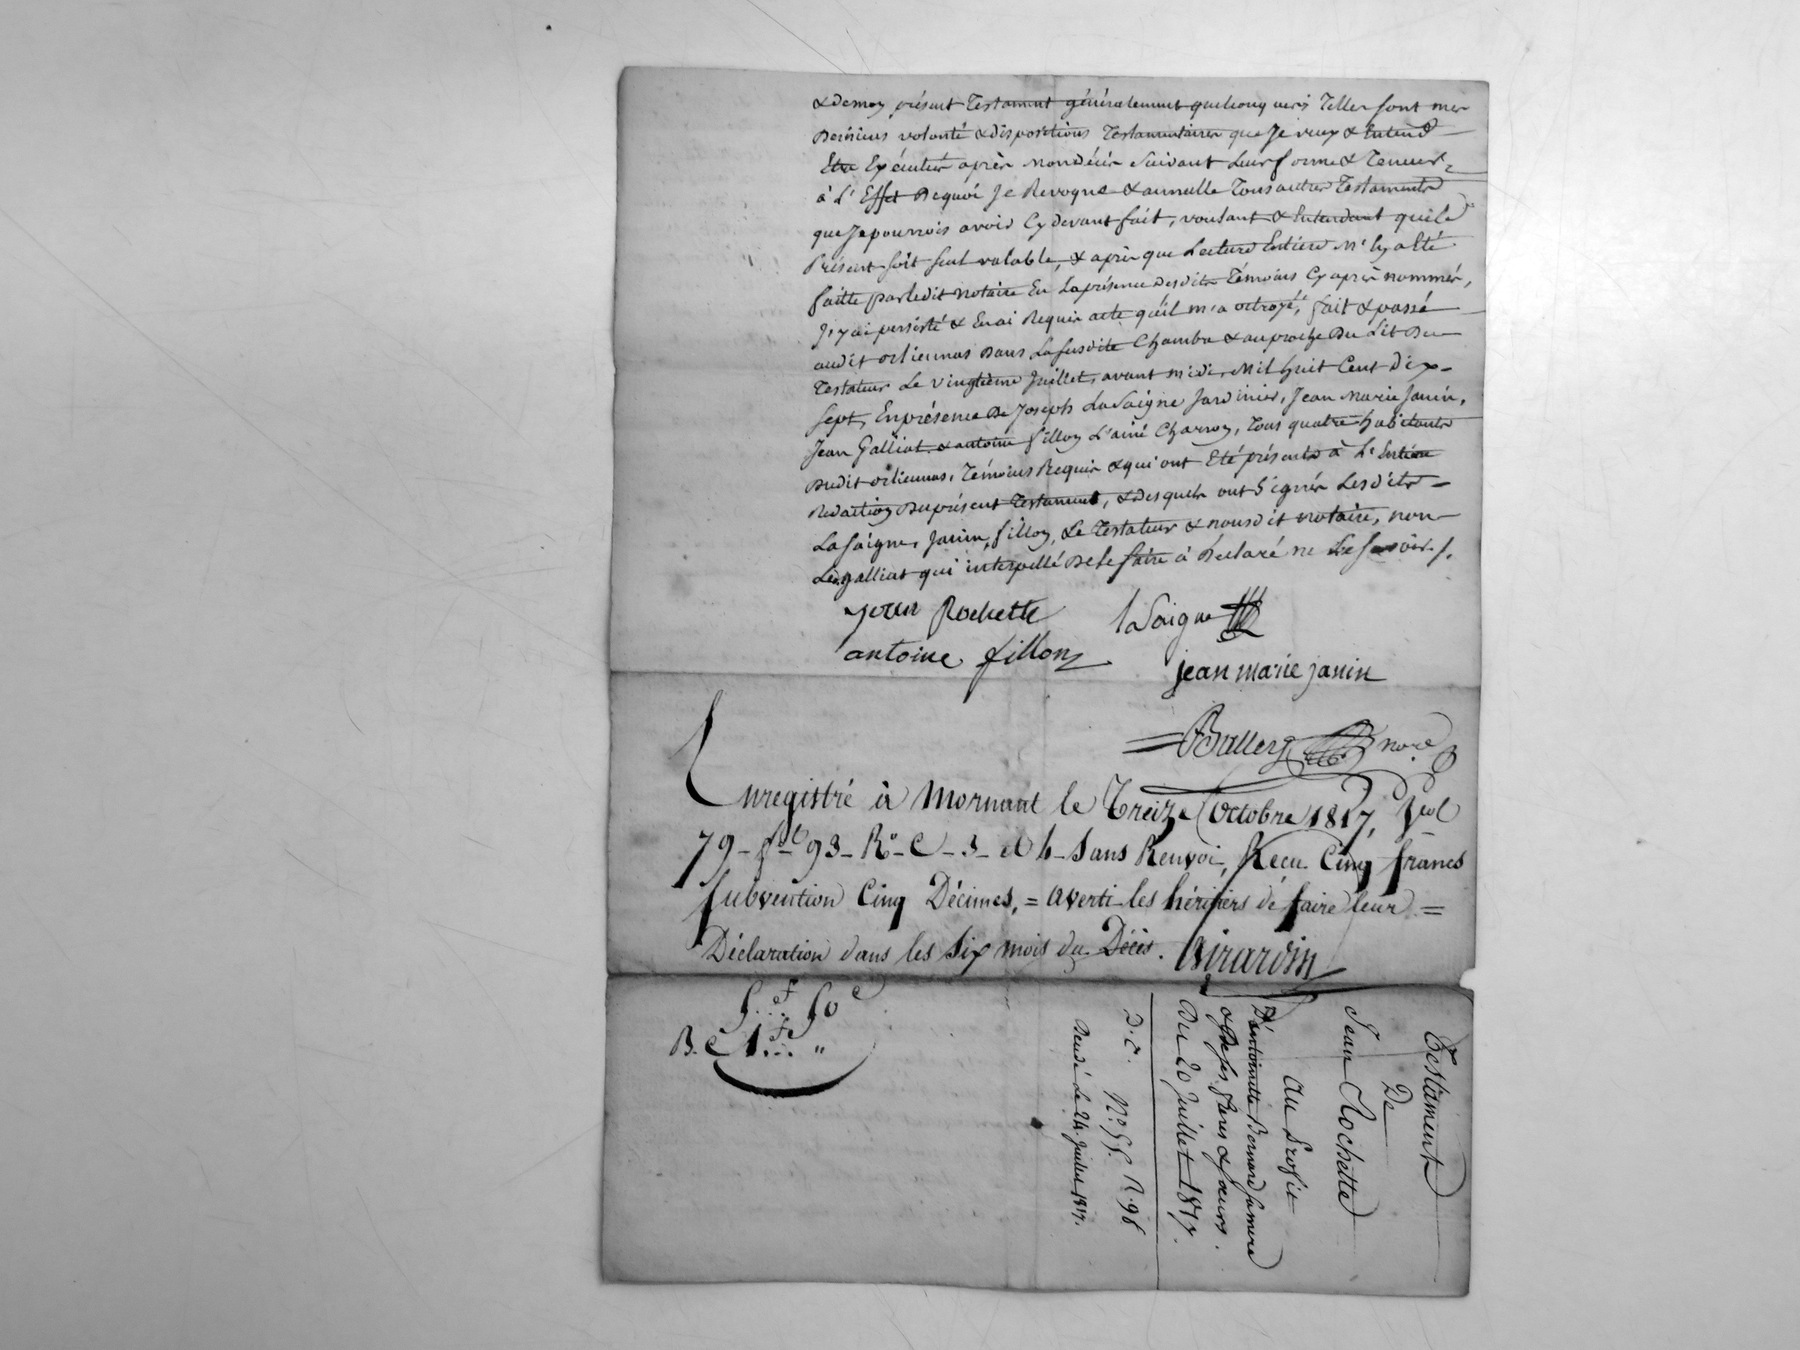 & de mon présent Testament généralement quelconq vers Telles sont mes
Dernieres volonté & dispositions Testamentaires que Je veux & Entend
Etre Exécuter après mon décès Suivant Leur forme & Teneur
à L'Effet Dequoi Je Revoque & annulle Tous autres Testaments
que Je pourrois avoir Cy devant fait, voulant & Entendant que le
Présent soit seul valable, & après que Lecture Entiere M'En a Eté
faitte par ledit Notaire En La présence desdits Témoins Cy après nommés,
J'y ai persisté & En ai Requis acte qu'il m'a octroyé, fait & passé
audit orlienas Dans La susdite Chambre & au proche Du Lit Du
Testateur Le vingtième Juillet, avant midi, Mil huit Cent Dix-
sept, En présence De Joseph LaSaigne Jardinier, Jean Marie Janin,
Jean Galliat & antoine fillon L'ainé Charron, Tous quatre habitants
Dudit orlienas, Témoins Requis & qui ont Eté présents à L'Entière
Redaction Du présent Testament, & desquels ont Signés Lesdits
LaSaigne, Janin, fillon, Le Testateur & nousdit notaire, non
Led. galliat qui interpellé De le faire à Déclaré ne Le savoir ./.
jean Rochette laSaigne
antoine fillon
jean marie janin
Ballery nore
Enregistré à Mornant le Treize Octobre 1817, Vol
79 - fo 93 - Ro - C - 3 - et 4 - Sans Renvoi, Reçu Cinq francs
Subvention Cinq Décimes, = averti les héritiers de faire leur =
Déclaration dans les Six mois du Décès. Girardin
5..f 50c
B. C 1f... "
Testament
De
Jean Rochette
au Profit
D'antoinette Bernard sa mere
& De ses freres & sœurs.
Du 20 Juillet 1817.
D. C. No 55. R. 98
Deudé Le 24 Juillet 1817.